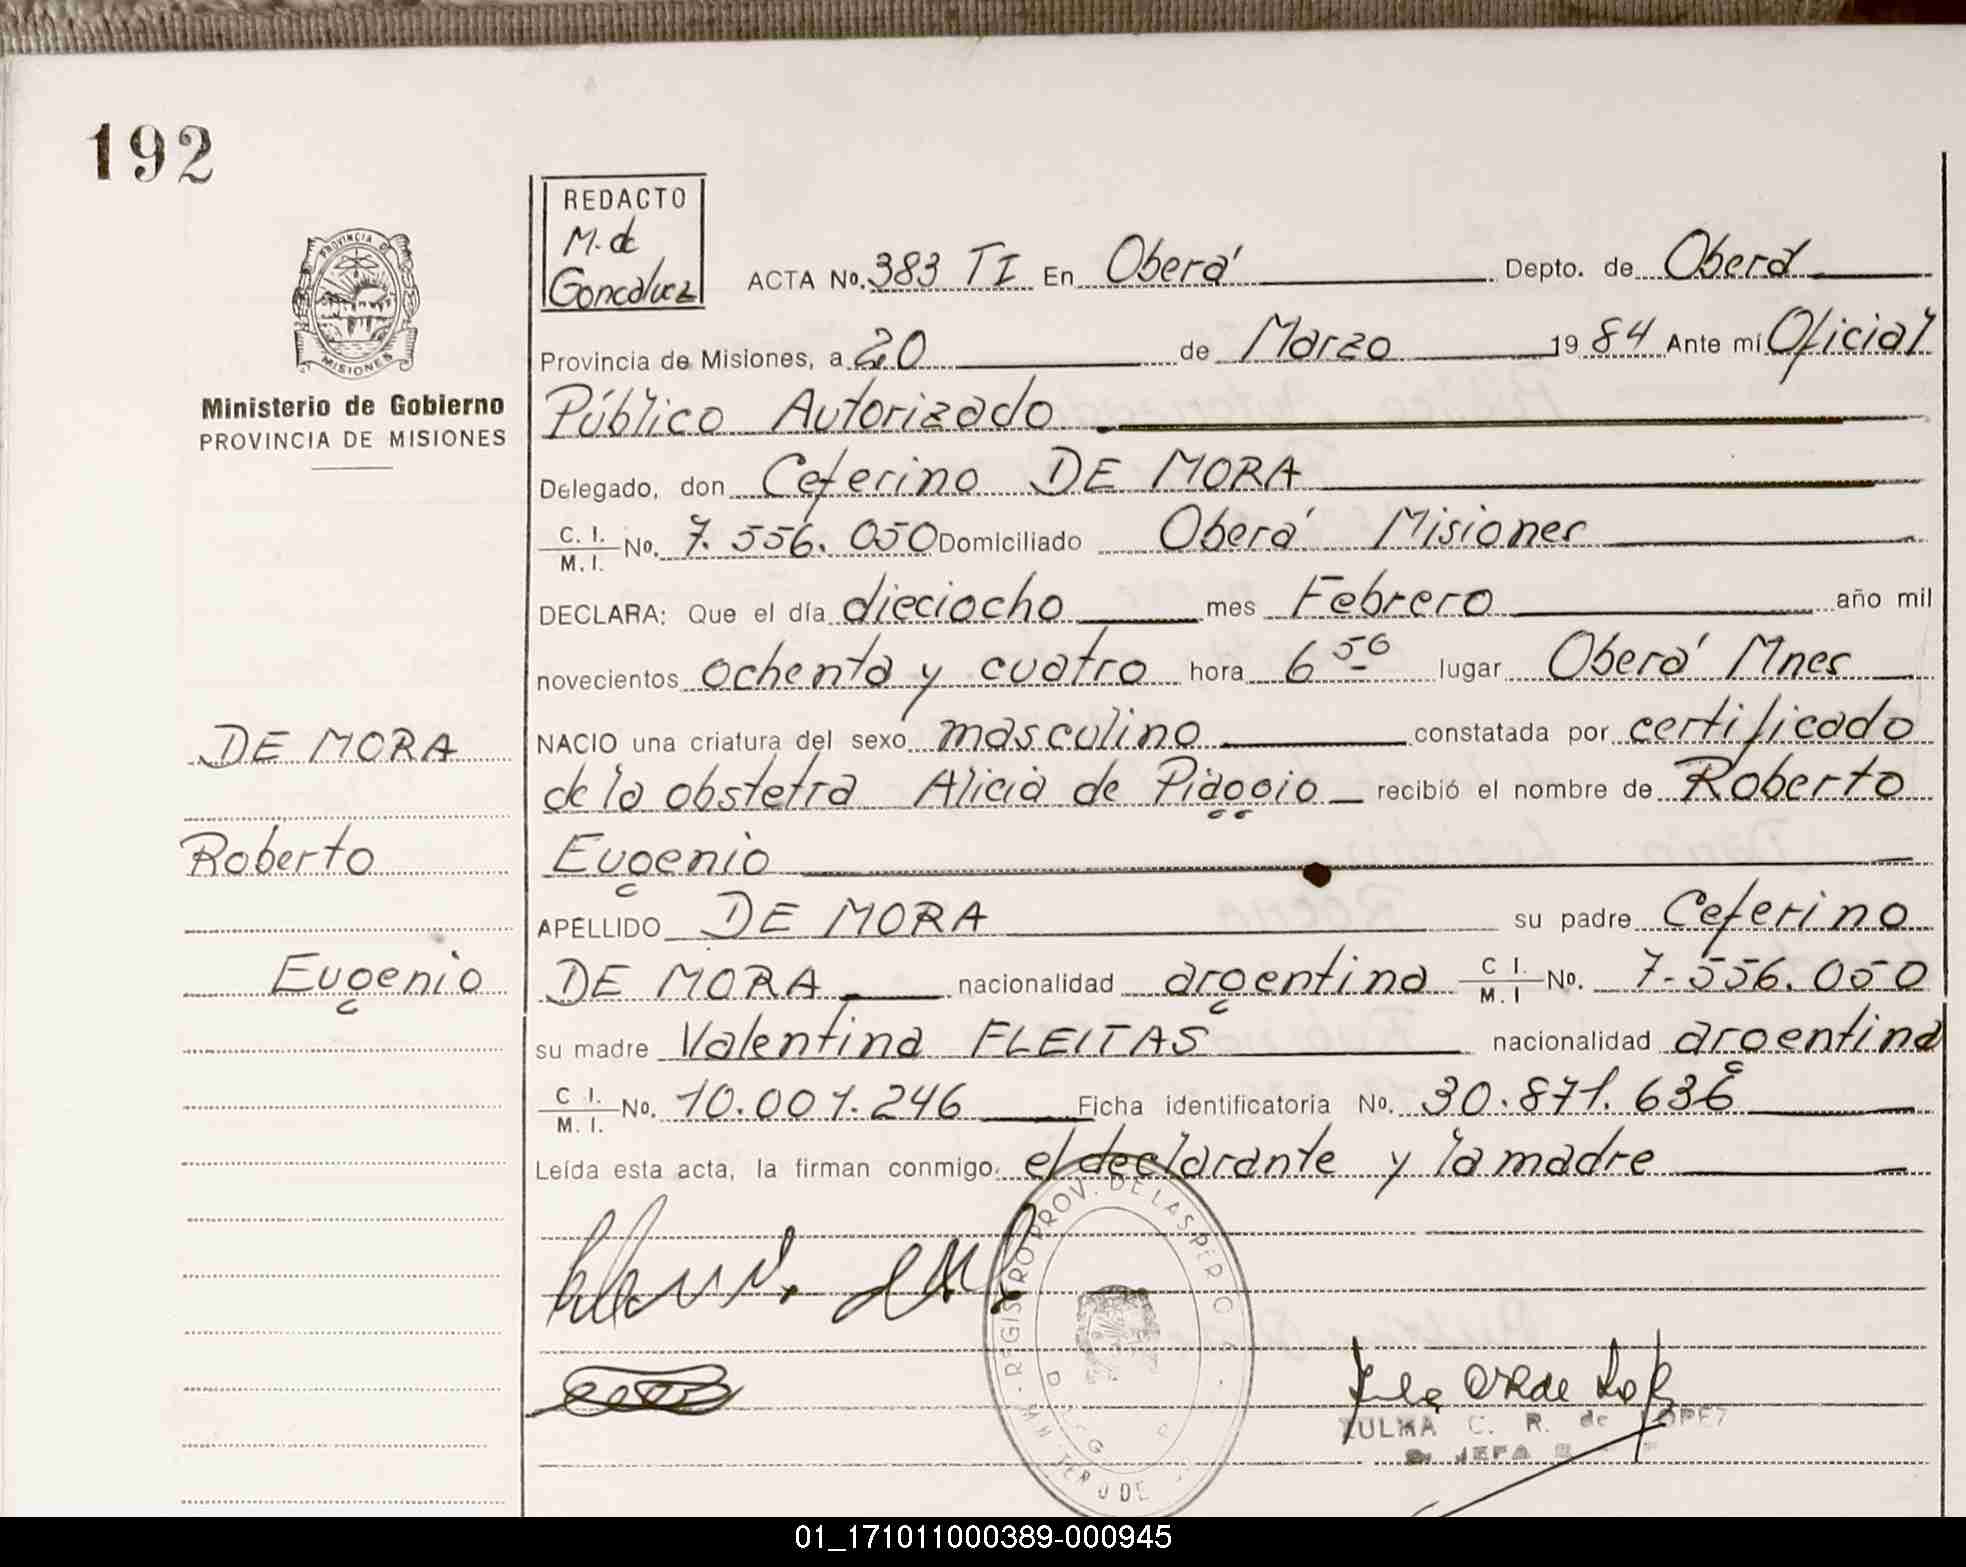 192
PROVINCIA DE
MISIONES
Ministerio de Gobierno
PROVINCIA DE MISIONES
DE MORA
Roberto
Eugenio
REDACTO
M. de
Goncalvez
ACTA No. 383 TI En Oberá Depto. de Oberá
Provincia de Misiones, a 20 de Marzo 1984 Ante mí Oficial
Público Autorizado
Delegado, don Ceferino DE MORA
C. I. / M. I. No. 7.556.050 Domiciliado Oberá Misiones
DECLARA: Que el día dieciocho mes Febrero año mil
novecientos ochenta y cuatro hora 6 50 lugar Oberá Mnes
NACIO una criatura del sexo masculino constatada por certificado
de la obstetra Alicia de Piaggio recibió el nombre de Roberto
Eugenio
APELLIDO DE MORA su padre Ceferino
DE MORA nacionalidad argentina C I. / M. I No. 7.556.050
su madre Valentina FLEITAS nacionalidad argentina
C I. / M. I. No. 10.001.246 Ficha identificatoria No. 30.871.636
Leída esta acta, la firman conmigo. el declarante y la madre
REGISTRO PROV. DE LAS PER
ZULMA C. R. de LOPEZ
JEFA
01_171011000389-000945